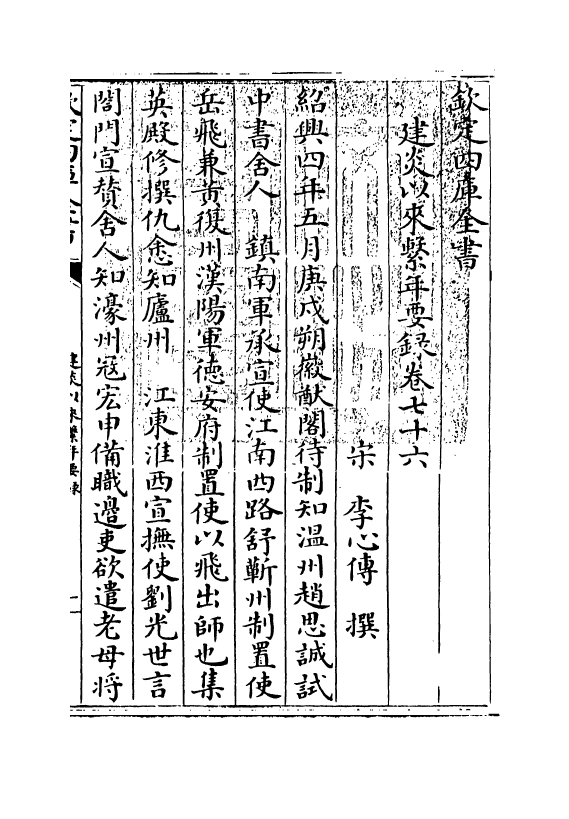 欽定四庫全書
建炎以來繫年要錄卷七十六
宋 李心傳 撰
紹興四年五月庚戌朔徽猷閣待制知溫州趙思誠試
中書舍人 鎮南軍承宣使江南西路舒蘄州制置使
岳飛兼黃復州漢陽軍德安府制置使以飛出師也集
英殿修撰仇悆知廬州 江東淮西宣撫使劉光世言
閤門宣賛舍人知濠州寇宏申備職邊吏欲遣老母將
建炎以來繫年要錄
一